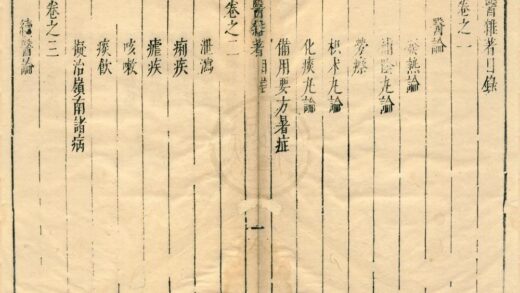 醫雜著目錄
卷之一
醫論
發熱論
補陰丸論
勞瘵
枳朮丸論
化痰丸論
備用要方暑症
醫雜著目錄
卷之二
泄瀉
痢疾
瘧疾
咳嗽
痰飲
擬治嶺南諸病
卷之三
續醫論
一